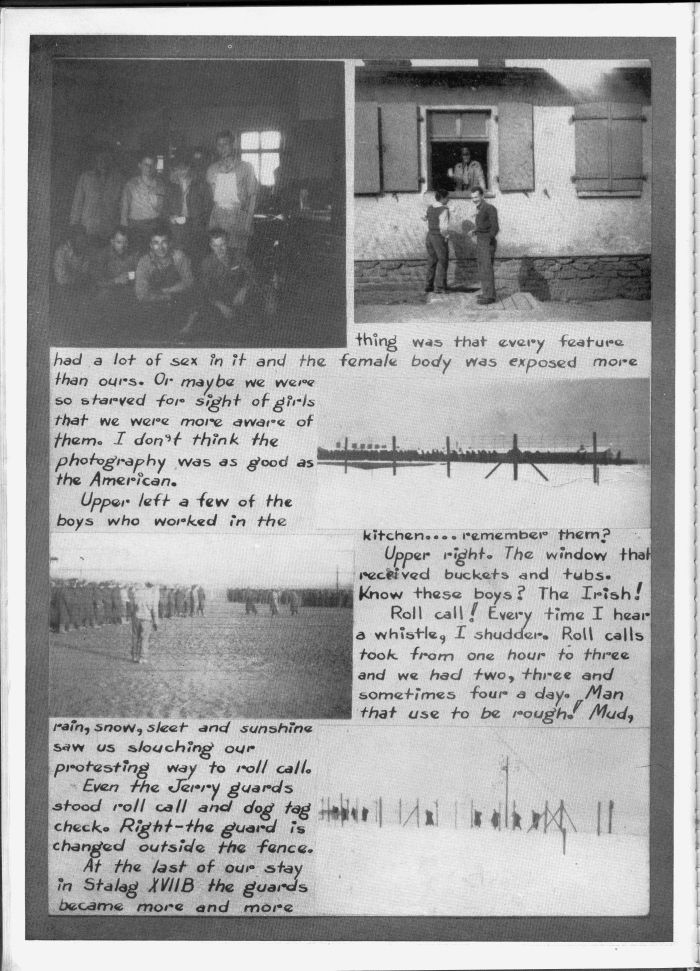 thing was that every feature
had a lot of sex in it and the female body was exposed more
than ours. Or maybe we were
so starved for sight of girls
that we were more aware of
them. I don't think the
photography was as good as
the American.
Upper left a few of the
boys who worked in the
kitchen.... remember them?
Upper right. The window that
received buckets and tubs.
Know these boys? The Irish!
Roll call! Every time I hear
a whistle, I shudder. Roll calls
took from one hour to three
and we had two, three and
sometimes four a day. Man
that use to be rough! Mud,
rain, snow, sleet and sunshine
saw us slouching our
protesting way to roll call.
Even the Jerry guards
stood roll call and dog tag
check. Right-the guard is
changed outside the fence.
At the last of our stay
in Stalag XVIIB the guards
became more and more